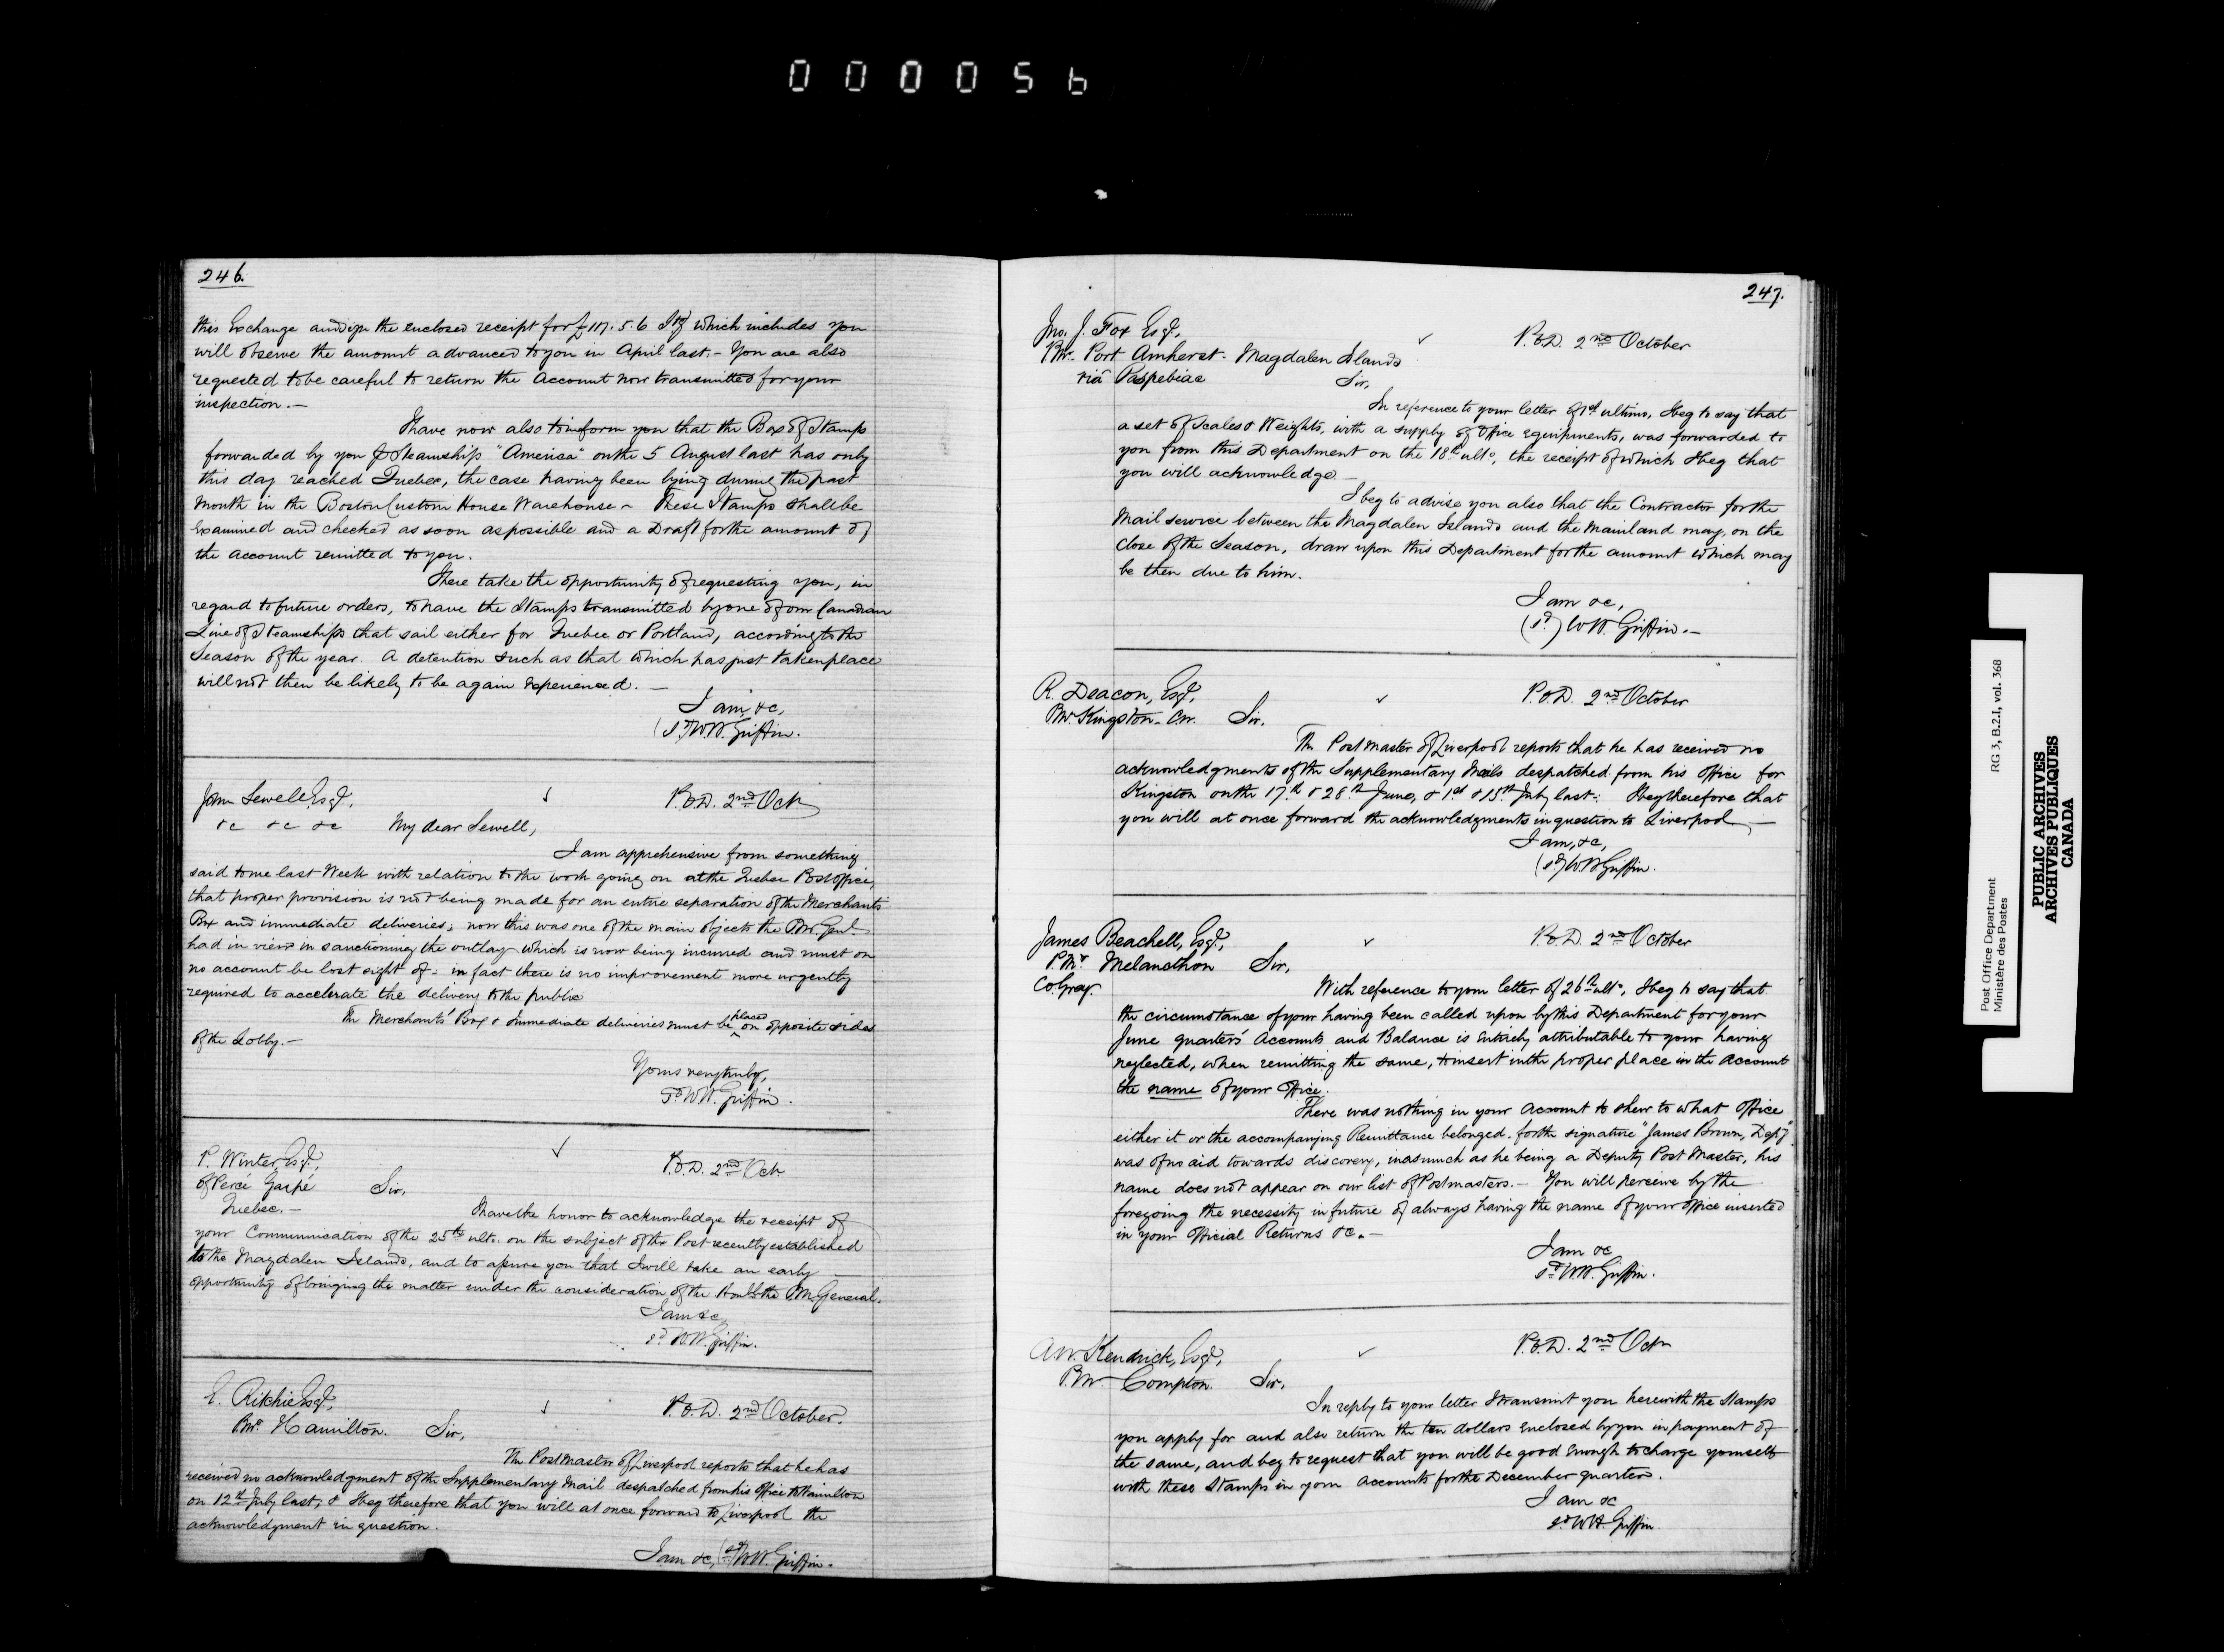 000056
246.
this Exchange and sign the enclosed receipt for £117.5.6 Stg which includes you
will observe the amount advanced to you in April last. – You are also
requested to be careful to return the Account now transmitted for your
inspection. –
I have now also to inform you that the Box of Stamps
forwarded by you p Steamship "America" on the 5 August last has only
this day reached Quebec, the case having been lying during the past
Month in the Boston Custom House Warehouse – These Stamps shall be
Examined and checked as soon as possible and a Draft for the amount of
the account remitted to you.
I here take the opportunity of requesting you, in
regard to future orders, to have the Stamps transmitted by one of our Canadian
Line of Steamships that sail either for Quebec or Portland, according to the
Season of the year. A detention such as that which has just taken place
will not then be likely to be again experienced. –
I am, &c,
(sd) W.H. Griffin.
John Sewell, Esqr,
P.O.D. 2nd Octr
&c &c &c My dear Sewell,
I am apprehensive from something
said to me last Week with relation to the work going on at the Quebec Post Office,
that proper provision is not being made for an entire separation of the Merchants
Box and immediate deliveries; now this was one of the main objects the P.Mr. Genl
had in view in sanctioning the outlay which is now being incurred and must on
no account be lost sight of – in fact there is no improvement more urgently
required to accelerate the delivery to the public
The Merchants' Box & Immediate deliveries must be placed on opposite sides
of the Lobby. –
Yours very truly,
Sd W.H. Griffin.
P. Winter, Esqr,
P.O.D. 2nd Octr.
of Percé Gaspé Sir,
Quebec. –
I have the honor to acknowledge the receipt of
your Communication of the 25th ulto. on the subject of the Post recently established
to the Magdalen Islands, and to assure you that I will take an early
opportunity of bringing the matter under the consideration of the Honble the P.M. General.
I am &c
sd W.H. Griffin.
E. Ritchie Esqr,
P.O.D. 2nd October.
P.Mr. Hamilton. Sir,
The Postmaster of Liverpool reports that he has
received no acknowledgment of the Supplementary Mail despatched from his Office to Hamilton
on 12th July last, & I beg therefore that you will at once forward to Liverpool the
acknowledgment in question.
I am &c, (sd) W.H. Griffin.
247.
Jno. J. Fox Esqr,
P.O.D. 2nd October
P.Mr. Port Amherst. Magdalen Islands
via Paspebiac Sir,
In reference to your letter of 1st ultimo, I beg to say that
a set of Scales & Weights, with a supply of Office Equipments, was forwarded to
you from this Department on the 18th ulto, the receipt of which I beg that
you will acknowledge. –
I beg to advise you also that the Contractor for the
Mail service between the Magdalen Islands and the Mainland may, on the
Close of the Season, draw upon this Department for the amount which may
be then due to him.
I am &c,
(sd) W.H. Griffin. –
R. Deacon, Esqr,
P.O.D. 2nd October
P.Mr. Kingston – C.W. Sir.
The Postmaster of Liverpool reports that he has received no
acknowledgments of the Supplementary Mails despatched from his Office for
Kingston on the 17th & 28th June, & 1st & 15th July last: I beg therefore that
you will at once forward the acknowledgments in question to Liverpool –
I am, &c,
(sd) W.H. Griffin.
James Beachell, Esqr,
P.O.D. 2nd October
P.Mr. Melancthon Sir,
Co. Grey.
With reference to your letter of 26th ulto, I beg to say that
the circumstance of your having been called upon by this Department for your
June quarters' Accounts and Balance is entirely attributable to your having
neglected, when remitting the same, to insert in the proper place in the Account
the name of your Office.
There was nothing in your Account to shew to what Office
either it or the accompanying Remittance belonged, for the signature "James Brown, Depy"
was of no aid towards discovery, inasmuch as he being a Deputy Post Master, his
name does not appear on our list of Postmasters. – You will perceive by the
foregoing the necessity in future of always having the name of your Office inserted
in your Official Returns &c. –
I am &c
sd W.H. Griffin.
A.W. Kendrick, Esqr,
P.O.D. 2nd Octr
P.Mr. Compton. Sir,
In reply to your letter I transmit you herewith the Stamps
you apply for and also return the ten dollars enclosed by you in payment of
the same, and beg to request that you will be good Enough to charge yourself
with these Stamps in your Accounts for the December quarter.
I am &c
sd W.H. Griffin.
Post Office Department RG 3, B.2.I, vol. 368
Ministère des Postes
PUBLIC ARCHIVES
ARCHIVES PUBLIQUES
CANADA